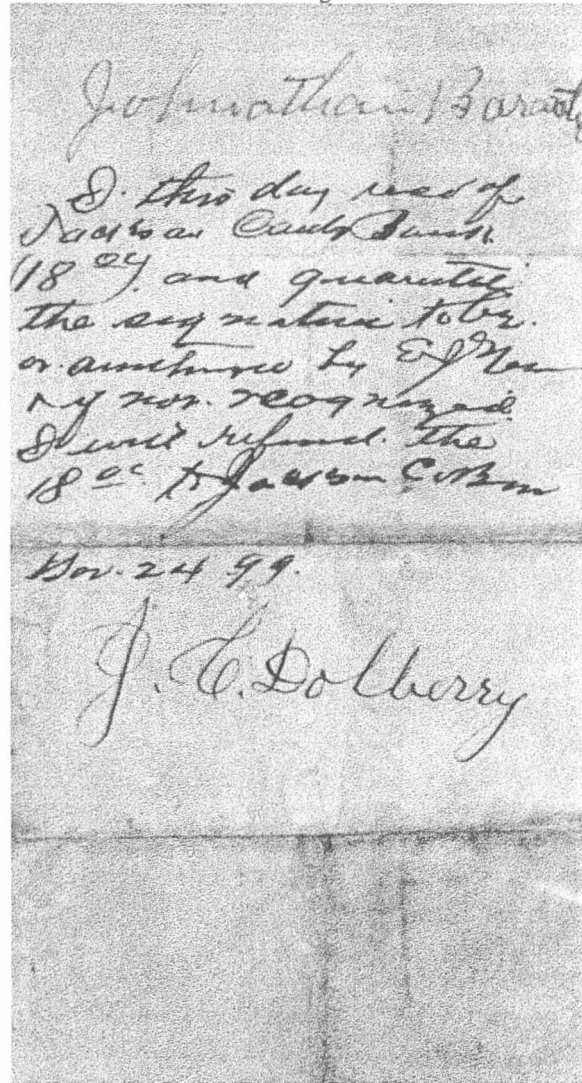 Johnathan
I. this day recd of
Jackson County Bank
18 00 and guarantee
the signature to be.
or by E J
not. recognized
I will refund. the
18 00 to Jackson Co
Nov. 24 99.
J. E. Dolberry